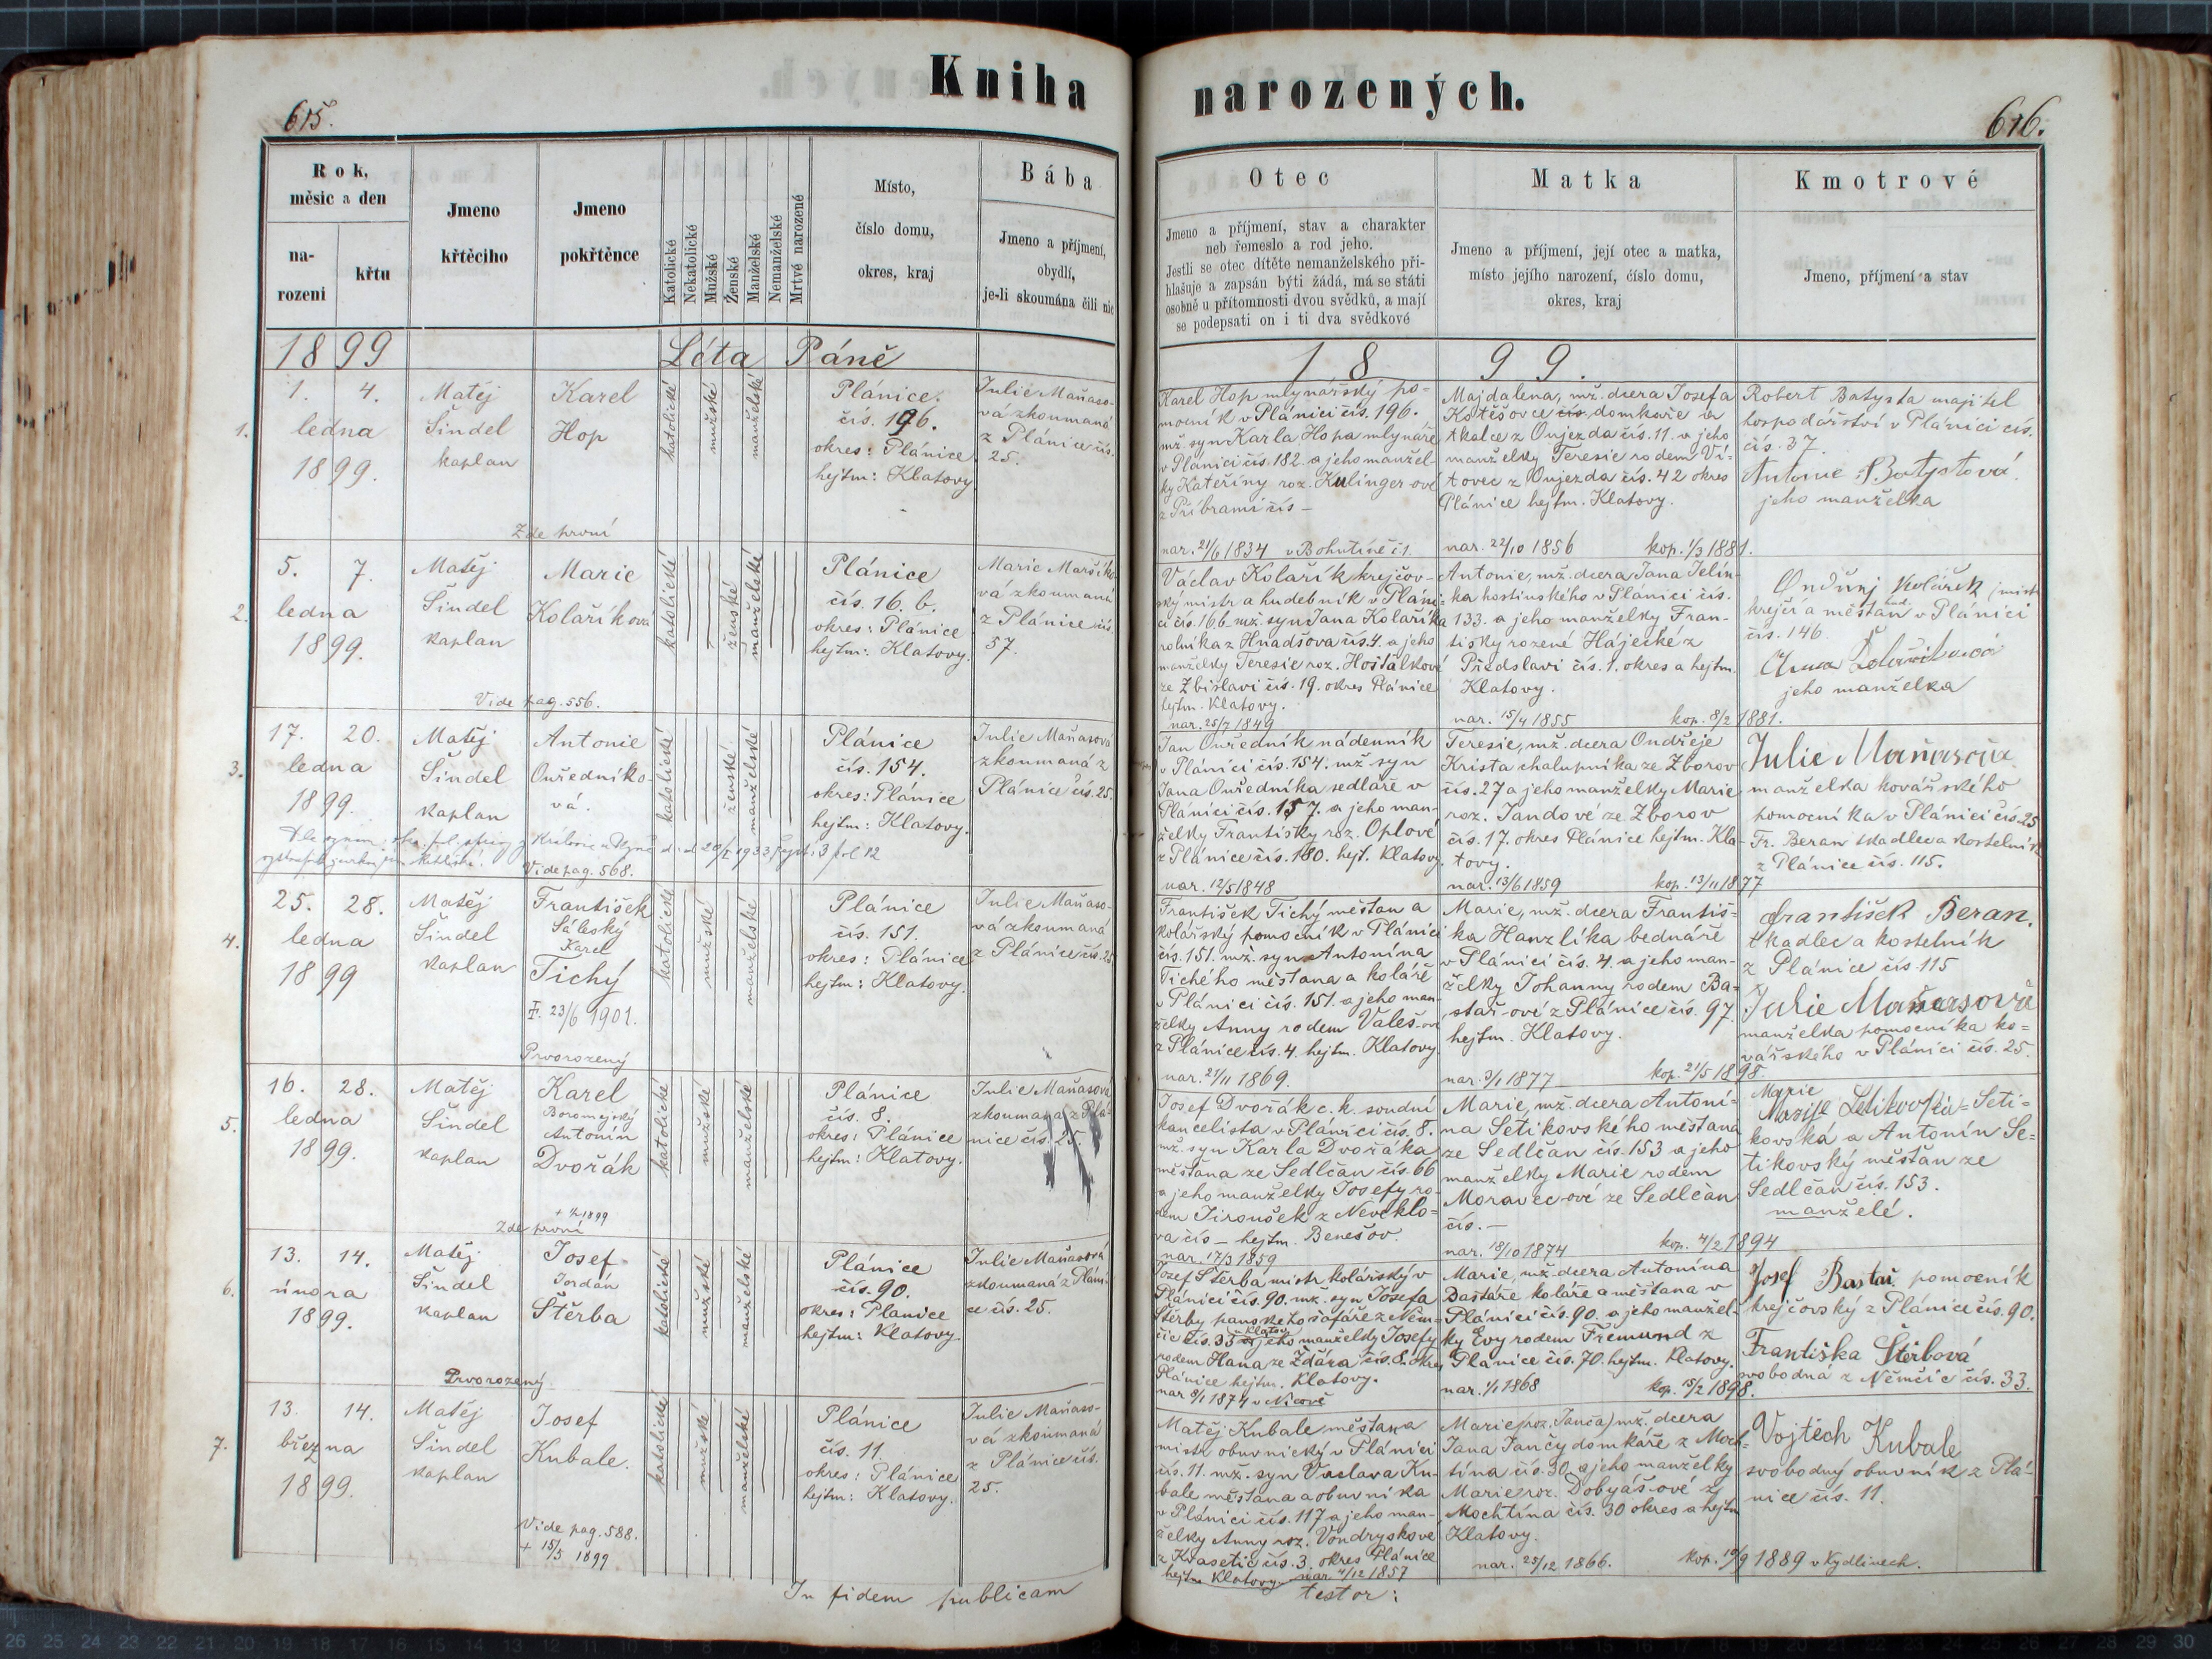 Kniha narozených.
615.
616.
Rok,
měsic a den
na-
rozeni
křtu
Jmeno
křtěciho
Jmeno
pokřtěnce
Katolické
Nekatolické
Mužské
Ženské
Manželské
Nemanželské
Mrtvé narozené
Místo,
číslo domu,
okres, kraj
Bába
Jmeno a příjmení,
obydlí,
je-li skoumána čili nic
Otec
Jmeno a příjmení, stav a charakter
neb řemeslo a rod jeho.
Jestli se otec dítěte nemanželského při-
hlašuje a zapsán býti žádá, má se státi
osobně u přítomnosti dvou svědků, a mají
se podepsati on i ti dva svědkové
Matka
Jmeno a příjmení, její otec a matka,
místo jejího narození, číslo domu,
okres, kraj
Kmotrové
Jmeno, příjmení a stav
1899 Léta Páně
1899.
1.
1. 4.
ledna
1899.
Matěj
Šindel
kaplan
Karel
Hop
Zde první
katolické
mužské
manželské
Plánice.
čís. 196.
okres: Plánice
hejtm: Klatovy
Julie Maňaso-
vá zkoumaná
z Plánice čís.
25.
Karel Hop mlynářský po-
mocník v Plánici čís. 196.
mž. syn Karla Hopa mlynáře
v Plánici čís. 182. a jeho manžel-
ky Kateřiny roz. Kulinger-ové
z Příbrami čís –
nar. 21/6 1834 v Bohutíně č 1.
Majdalena, mž. dcera Josefa
Kotěšovce čís. domkaře a
tkalce z Oujezda čís. 11. a jeho
manželky Teresie rodem Ví-
tovec z Oujezda čís. 42 okres
Plánice hejtm. Klatovy.
nar. 22/10 1856 kop. 1/3 1881.
Robert Batysta majitel
hospodářství v Plánici čís.
čís. 37.
Antonie Batystová
jeho manželka
2.
5. 7.
ledna
1899.
Matěj
Šindel
kaplan
Marie
Kolaříková
Vide pag. 556.
katolické
ženské
manželské
Plánice
čís. 16. b.
okres: Plánice
hejtm: Klatovy.
Marie Maršíko-
vá zkoumaná
z Plánice čís.
37.
Václav Kolařík krejčov-
ský mistr a hudebník v Pláni-
ci čís. 16 b. mž. syn Jana Kolaříka
rolníka z Hnadšova čís. 4. a jeho
manželky Teresie roz. Hošťálkové
ze Zbislavi čís. 19. okres Plánice
hejtm. Klatovy.
nar. 25/7 1849
Antonie, mž. dcera Jana Jelín-
ka hostinského v Plánici čís.
133. a jeho manželky Fran-
tišky rozené Hájecké z
Předslavi čís. 1. okres a hejtm.
Klatovy.
nar. 15/4 1855 kop. 8/2 1881.
Ondřej Kolářík mistr
krejčí a měšťan v Plánici
čís. 146.
Anna
jeho manželka
3.
17. 20.
ledna
1899.
Matěj
Šindel
kaplan
Antonie
Ouředníko-
vá.
Vide pag. 568.
katolické
ženské
manželské
Plánice
čís. 154.
okres: Plánice
hejtm: Klatovy.
Julie Maňasová
zkoumaná z
Plánice čís. 25.
Jan Ouředník nádenník
v Plánici čís. 154. mž. syn
Jana Ouředníka sedláře v
Plánici čís. 157. a jeho man-
želky Františky roz. Oplové
z Plánice čís. 180. hejt. Klatovy.
nar. 12/5 1848
Teresie, mž. dcera Ondřeje
Krista chalupníka ze Zborov
čís. 27 a jeho manželky Marie
roz. Jandové ze Zborov
čís. 17. okres Plánice hejtm. Kla-
tovy.
nar. 13/6 1859 kop. 13/11 1877
Julie Maňasová
manželka kovářského
pomocníka v Plánici čís. 25
Fr. Beran tkadlec a kostelník
z Plánice čís. 115.
4.
25. 28.
ledna
1899
Matěj
Šindel
kaplan
František
Sáleský
Karel
Tichý
23/6 1901.
Prvorozený
katolické
mužské
manželské
Plánice
čís. 151.
okres: Plánice
hejtm: Klatovy.
Julie Maňaso-
vá zkoumaná
z Plánice čís. 25
František Tichý měšťan a
kolářský pomocník v Plánici
čís. 151. mž. syn Antonína
Tichého měšťana a koláře
v Plánici čís. 151. a jeho man-
želky Anny rodem Valeš-ové
z Plánice čís. 4. hejtm. Klatovy.
nar. 21/11 1869.
Marie, mž. dcera Františ-
ka Hanzlíka bednáře
v Plánici čís. 4. a jeho man-
želky Johanny rodem Ba-
stař-ové z Plánice čís. 97.
hejtm. Klatovy.
nar. 3/1 1877 kop. 21/5 1898.
František Beran.
tkadlec a kostelník
z Plánice čís. 115
Julie Maňasová
manželka pomocníka ko-
vářského v Plánici čís. 25.
5.
16. 28.
ledna
1899.
Matěj
Šindel
kaplan
Karel
Boromejský
Antonín
Dvořák
Zde první
katolické
mužské
manželské
Plánice
čís. 8.
okres: Plánice
hejtm: Klatovy.
Julie Maňasová
zkoumaná z Plá-
nice čís. 25.
Josef Dvořák c. k. soudní
kancelista v Plánici čís. 8.
mž. syn Karla Dvořáka
měšťana ze Sedlčan čís. 66
a jeho manželky Josefy ro-
dem Jiroušek z Neveklo-
va čís – hejtm. Benešov.
nar. 17/3 1859
Marie, mž. dcera Antoní-
na Setikovského měšťana
ze Sedlčan čís. 153 a jeho
manželky Marie rodem
Moravec-ové ze Sedlčan
čís. –
nar. 18/10 1874 kop. 4/2 1894
Marie
Marije Setikovská Seti-
kovská a Antonín Se-
tikovský měšťan ze
Sedlčan čís. 153.
manželé.
6.
13. 14.
února
1899.
Matěj
Šindel
kaplan
Josef
Jordán
Štěrba
Prvorozený
katolické
mužské
manželské
Plánice
čís. 90.
okres: Plánice
hejtm: Klatovy.
Julie Maňasová
zkoumaná z Pláni-
ce čís. 25.
Josef Štěrba mistr kolářský v
Plánici čís. 90. mž. syn Josefa
Štěrby panského šafáře z Něm-
čic čís. 33 a jeho manželky Josefy
rodem Hana ze Žďára čís. 8. okres
Plánice hejtm. Klatovy.
nar 8/1 1874 v Nicově
Marie, mž. dcera Antonína
Bastaře koláře a měšťana v
Plánici čís. 90. a jeho manžel-
ky Evy rodem Fremund z
Plánice čís. 70. hejtm. Klatovy.
nar. 1/1 1868 kop. 15/2 1898.
Josef Bastař pomocník
krejčovský z Plánice čís. 90.
Františka Štěrbová
svobodná z Němčic čís. 33.
7.
13. 14.
března
1899.
Matěj
Šindel
kaplan
Josef
Kubale.
Vide pag. 588.
+ 15/5 1899
katolické
mužské
manželské
Plánice
čís. 11.
okres: Plánice
hejtm: Klatovy.
Julie Maňaso-
vá zkoumaná
z Plánice čís.
25.
Matěj Kubale měšťan a
mistr obuvnický v Plánici
čís. 11. mž. syn Václava Ku-
bale měšťana a obuvníka
v Plánici čís. 117 a jeho man-
želky Anny roz. Vondryskové
z Kvasetic čís. 3. okres Plánice
hejtm Klatovy. nar. 4/12 1857
Marie (roz. Janča) mž. dcera
Jana Jančy domkáře z Moch-
tína čís. 30. a jeho manželky
Marie roz. Dobyáš-ové z
Mochtína čís. 30 okres a hejtm
Klatovy.
nar. 25/12 1866. kop. 10/9 1889 v Kydlinech.
Vojtěch Kubale
svobodný obuvník z Plá-
nice čís. 11.
In fidem publicam testor: